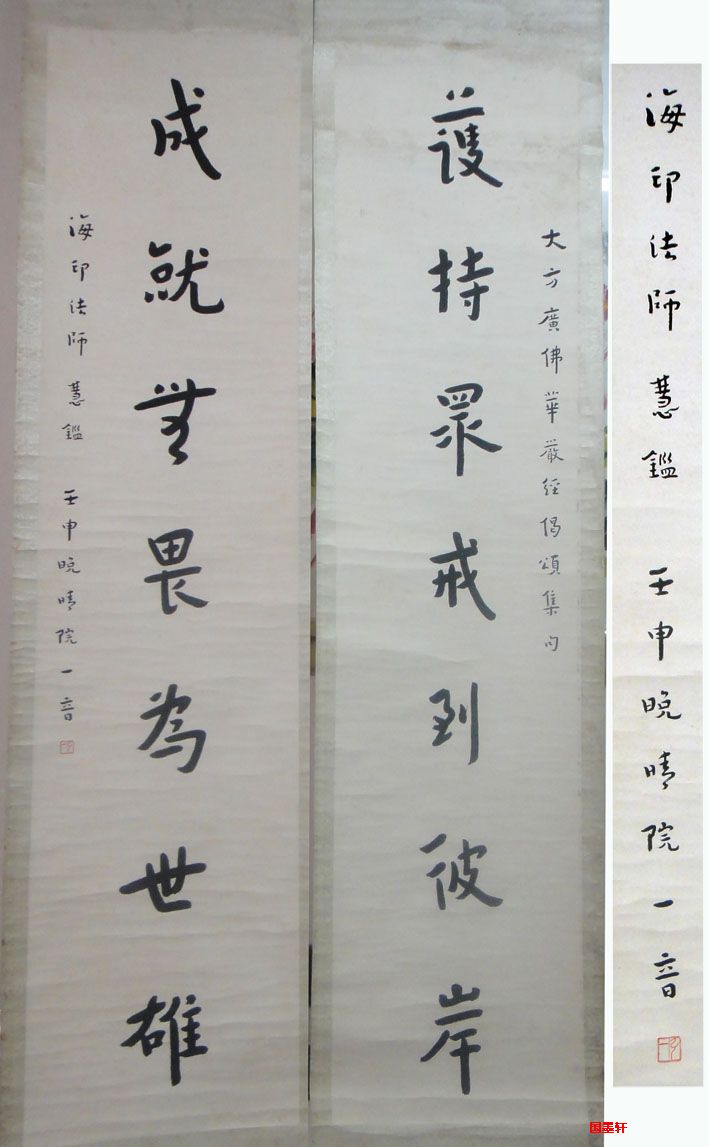 大方廣佛華嚴經偈頌集句
護持眾戒到彼岸
成就無畏為世雄
海印法師慧鑑 壬申晚晴院一音
海印法師慧鑑 壬申晚晴院一音
国墨轩